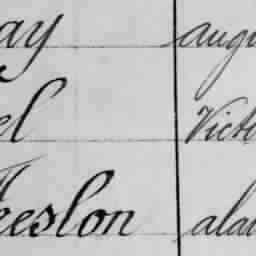 ay augu
el Victo
heeslon alau